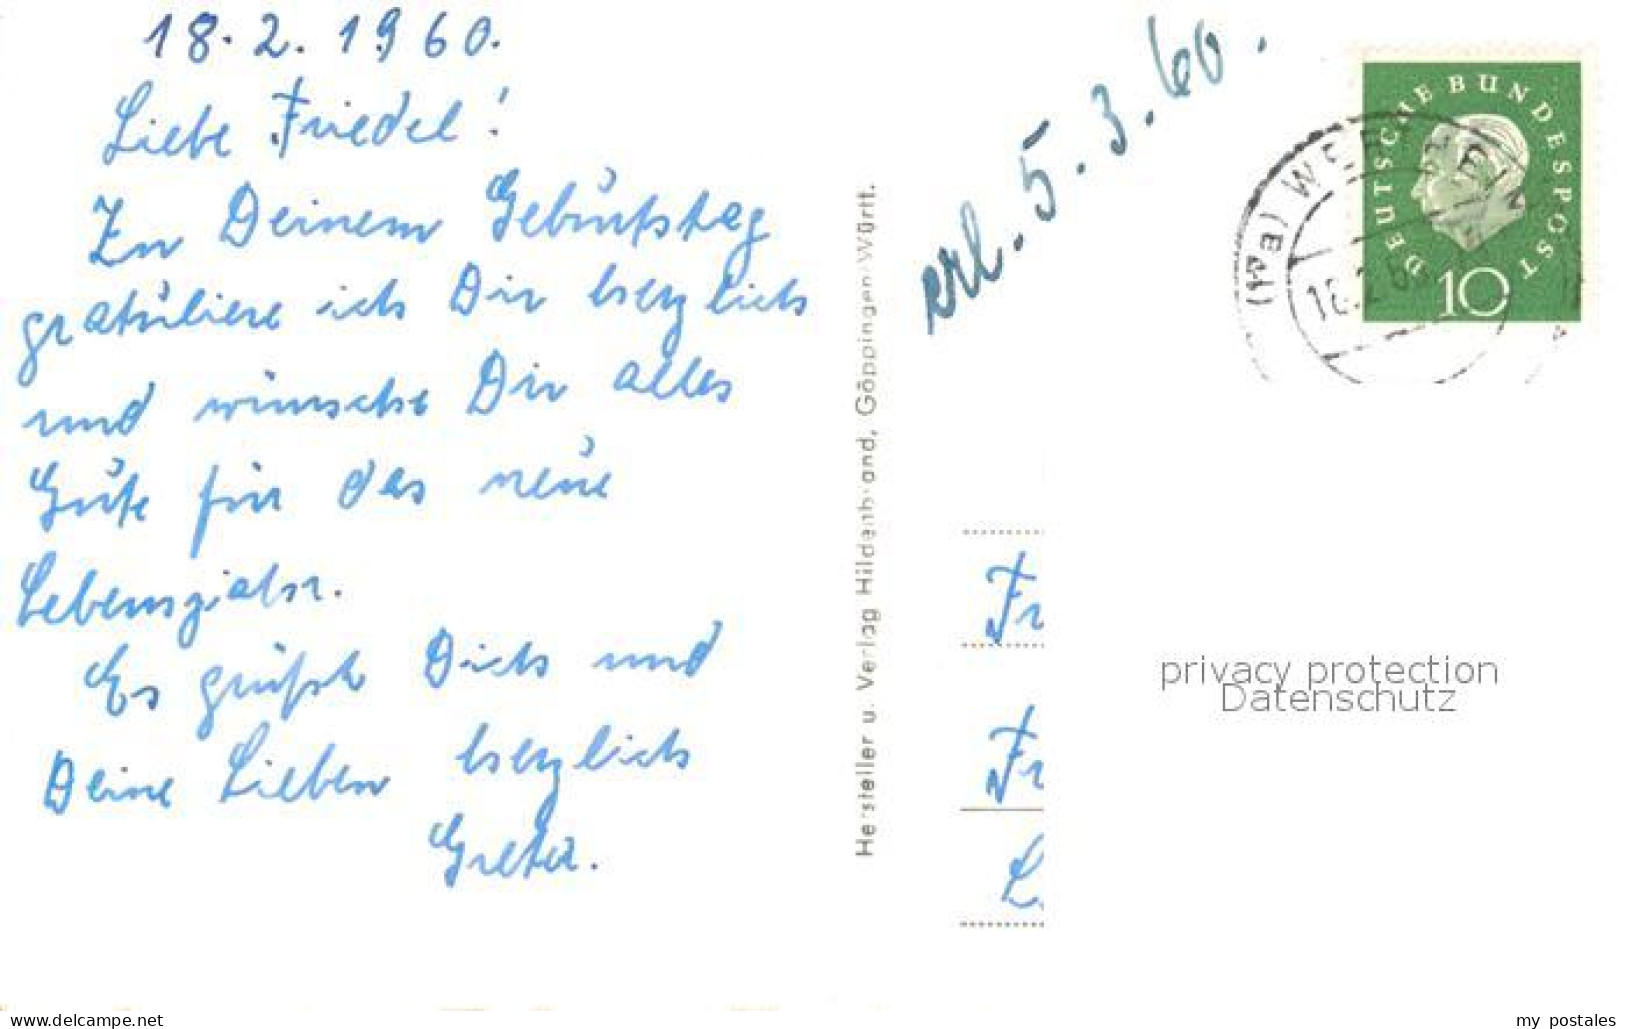 18.2.1960.
Liebe Friedel!
Zu Deinem Geburtstag
gratuliere ich Dir herzlich
und wünsche Dir alles
Gute für das neue
Lebensjahr.
Es grüßt Dich und
Deine Lieben herzlich
Greta.
Hersteller u. Verlag Hildenbrand, Göppingen/Württ.
erl. 5.3.60.
DEUTSCHE BUNDESPOST
10
Fr
Fr
L
privacy protection
Datenschutz
delcampe.net
my_postales